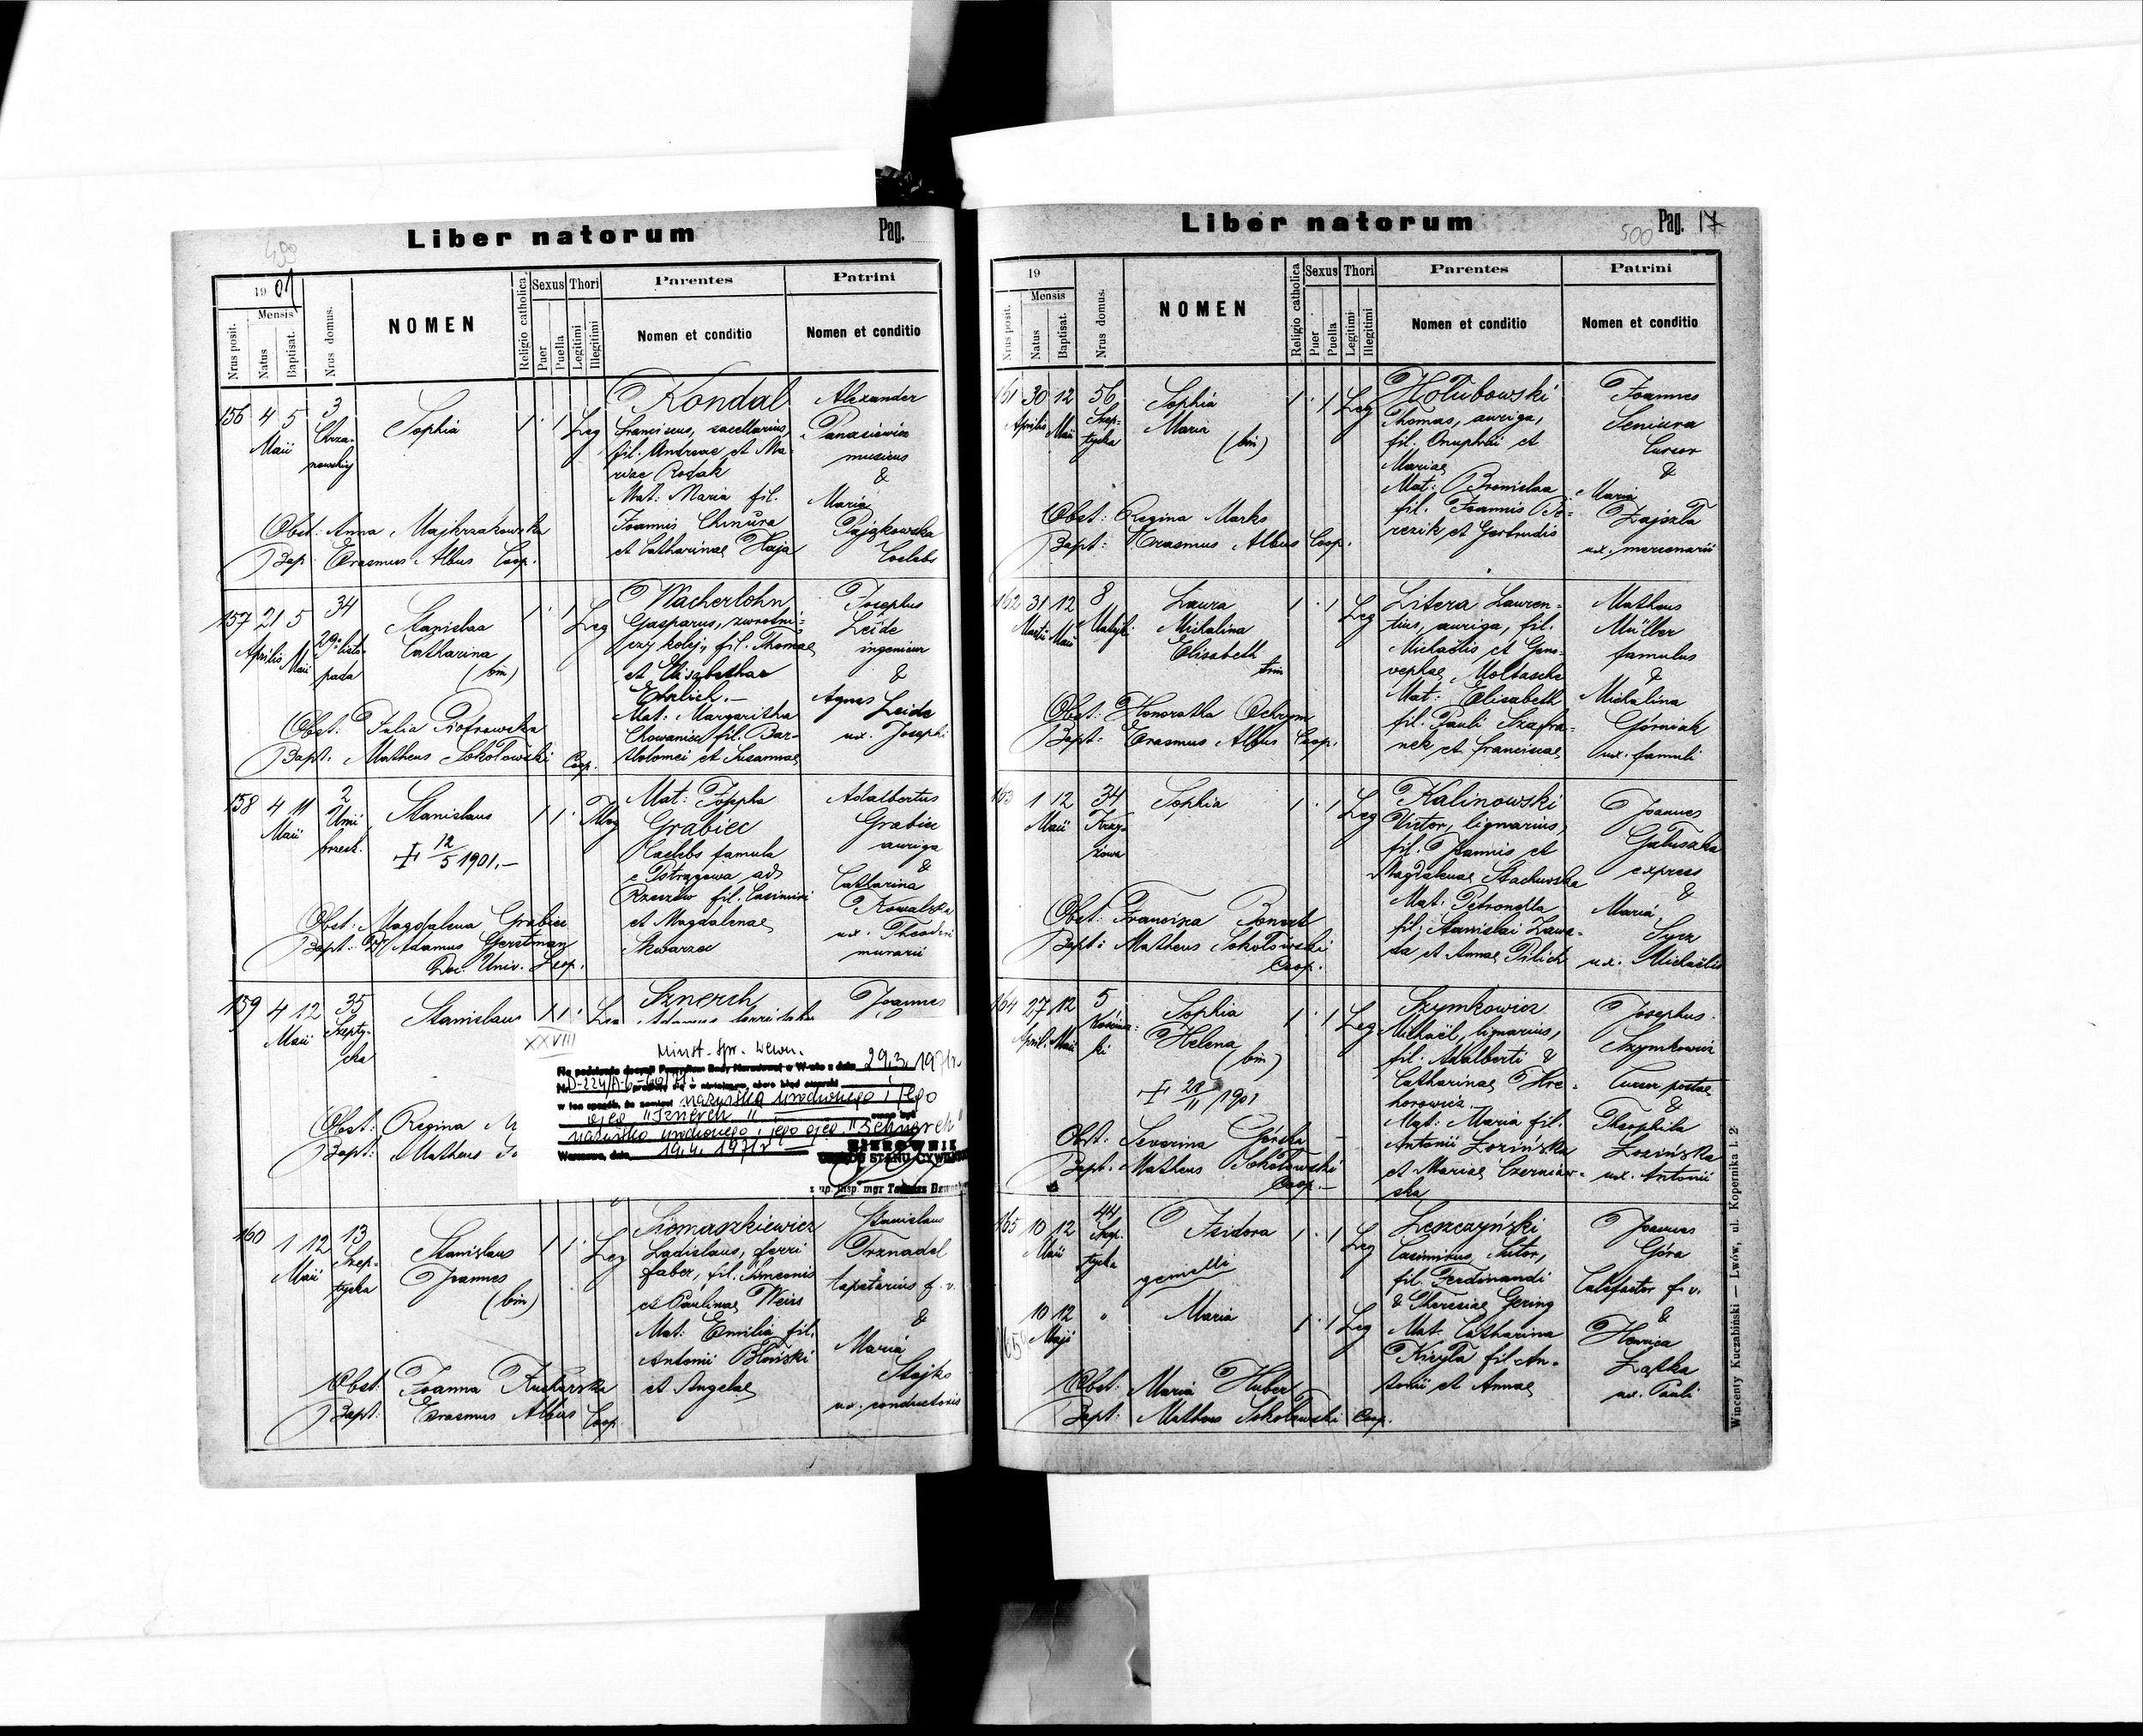 Liber natorum
Pag.
499
19 01
Mensis
Nrus posit.
Natus
Baptisat.
Nrus domus.
NOMEN
Religio catholica
Sexus
Puer
Puella
Thori
Legitimi
Illegitimi
Parentes
Nomen et conditio
Patrini
Nomen et conditio
156 4 5 Maii
3
Chrza-
nowskiej
Sophia
1 1 Leg
Kondal
Franciscus, sacellarius,
fil. Andreae et Ma-
riae Rodak
Mat: Maria fil.
Joannis Chmura
et Catharinae Haja
Alexander
Panasiewicz
musicus
&
Maria
Pająkowska
Coelebs
Obst: Anna Majkrzakowska
Bap: Erasmus Albus Coop.
157 21 5
Aprilis Maii
34
29. listo-
pada
Stanislaa
Catharina
(bin)
1 1 Leg
Wacherlohn
Gasparus, zwrotni-
czy kolej, fil. Thomae
et Elisabethae
Ehrlich.-
Mat: Margaritha
Chowaniec fil. Bar-
tholomei et Susannae
Josephus
Leide
ingenieur
&
Agnes Leide
ux. Josephi
Obst: Julia Piotrowska
Bapt. Matheus Sokołowski Coop.
158 4 11
Maii
2
Unii
brzesk.
Stanislaus
12/5 1901.-
1 1 Illeg
Mat: Sophia
Grabiec
Coelebs famula
e Pstrągowa ad
Rzeszów fil. Casimiri
et Magdalenae
Skwarzec
Adalbertus
Grabiec
auriga
&
Catharina
Kowalska
ux. Theodori
murarii
Obst: Magdalena Grabiec
Bapt: Dr Adamus Gerstman
Doc. Univ. Leop.
159 4 12
Maii
35
Szepty-
cka
Stanislaus
1 1 Leg
Sznerch
Joannes
Obst: Regina
Bapt: Matheus
XXVIII
Minist. Spr. Wewn.
29.3.1971r.
w ten sposób, że zamiast nazwiska urodzonego i jego
ojca "Sznerch"
nazwisko urodzonego i jego ojca "Schnerch"
Warszawa, dnia 19.4.1971r
KIEROWNIK
URZĘDU STANU CYWILN
z up. insp. mgr
160 1 12
Maii
13
Szep-
tycka
Stanislaus
Joannes
(bin)
1 1 Leg
Tomaszkiewicz
Ladislaus, ferri
faber, fil. Simeonis
et Paulinae Weiss
Mat: Emilia fil.
Antonii Błoński
et Angelae
Stanislaus
Trznadel
tapetarius f. v.
&
Maria
Stojko
ux. conductoris
Obst: Joanna Kucharska
Bapt: Erasmus Albus Coop.
Liber natorum
500
Pag. 17
19
Mensis
Nrus posit.
Natus
Baptisat.
Nrus domus.
NOMEN
Religio catholica
Sexus
Puer
Puella
Thori
Legitimi
Illegitimi
Parentes
Nomen et conditio
Patrini
Nomen et conditio
161 30 12
Aprilis Maii
56
Szep-
tycka
Sophia
Maria
(bin)
1 1 Leg
Hołubowski
Thomas, auriga,
fil. Onuphrii et
Mariae
Mat: Bronislaa
fil. Joannis Be-
rezik et Gertrudis
Joannes
Seniura
Cursor
&
Maria
Zajszla
ux. mercenarii
Obst: Regina Marks
Bapt: Erasmus Albus Coop.
162 31 12
Martii Maii
8
Matejki
Laura
Michalina
Elisabeth
trin
1 1 Leg
Litera Lauren-
tius, auriga, fil.
Michaëlis et Geno-
vephae Moltasche
Mat: Elisabeth
fil. Pauli Szafra-
nek et Franciscae
Matheus
Müller
famulus
&
Michalina
Górniak
ux. famuli
Obst: Honoratha Ochrym
Bapt: Erasmus Albus Coop.
163 1 12
Maii
34
Krzy-
żowa
Sophia
1 1 Leg
Kalinowski
Victor, lignarius,
fil. Joannis et
Magdalenae Stachurska
Mat: Petronella
fil. Stanislai Zawa-
da et Annae Pilich
Joannes
Gałuszka
express
&
Maria
Syrz
ux. Michaëlis
Obst: Francisca Bonert
Bapt: Matheus Sokołowski
Coop.
164 27 12
April. Maii
5
Kościus-
ki
Sophia
Helena
(bin)
28/11 1901
1 1 Leg
Szymkowicz
Michaël, lignarius,
fil. Adalberti &
Catharinae Hre-
horowicz
Mat: Maria fil.
Antonii Łozińska
et Mariae Czerniaw-
ska
Josephus
Szymkowicz
Cursor postae
&
Theophila
Łozińska
ux. Antonii
Obst: Severina Górska
Bapt: Matheus Sokołowski
Coop.-
165 10 12
Maii
44
Szep-
tycka
Isidora
1 1 Leg
gemelli
10 12
Maji
"
Maria
1 1 Leg
Leszczyński
Casimirus, Sutor,
fil. Ferdinandi
& Theresiae Gering
Mat. Catharina
Kiryła fil. An-
tonii et Annae
Joannes
Góra
Calefactor f. v.
&
Henrica
Załka
ux. Pauli
Obst: Maria Huber
Bapt: Matheus Sokołowski Coop.
Wincenty Kuczabiński — Lwów, ul. Kopernika l. 2